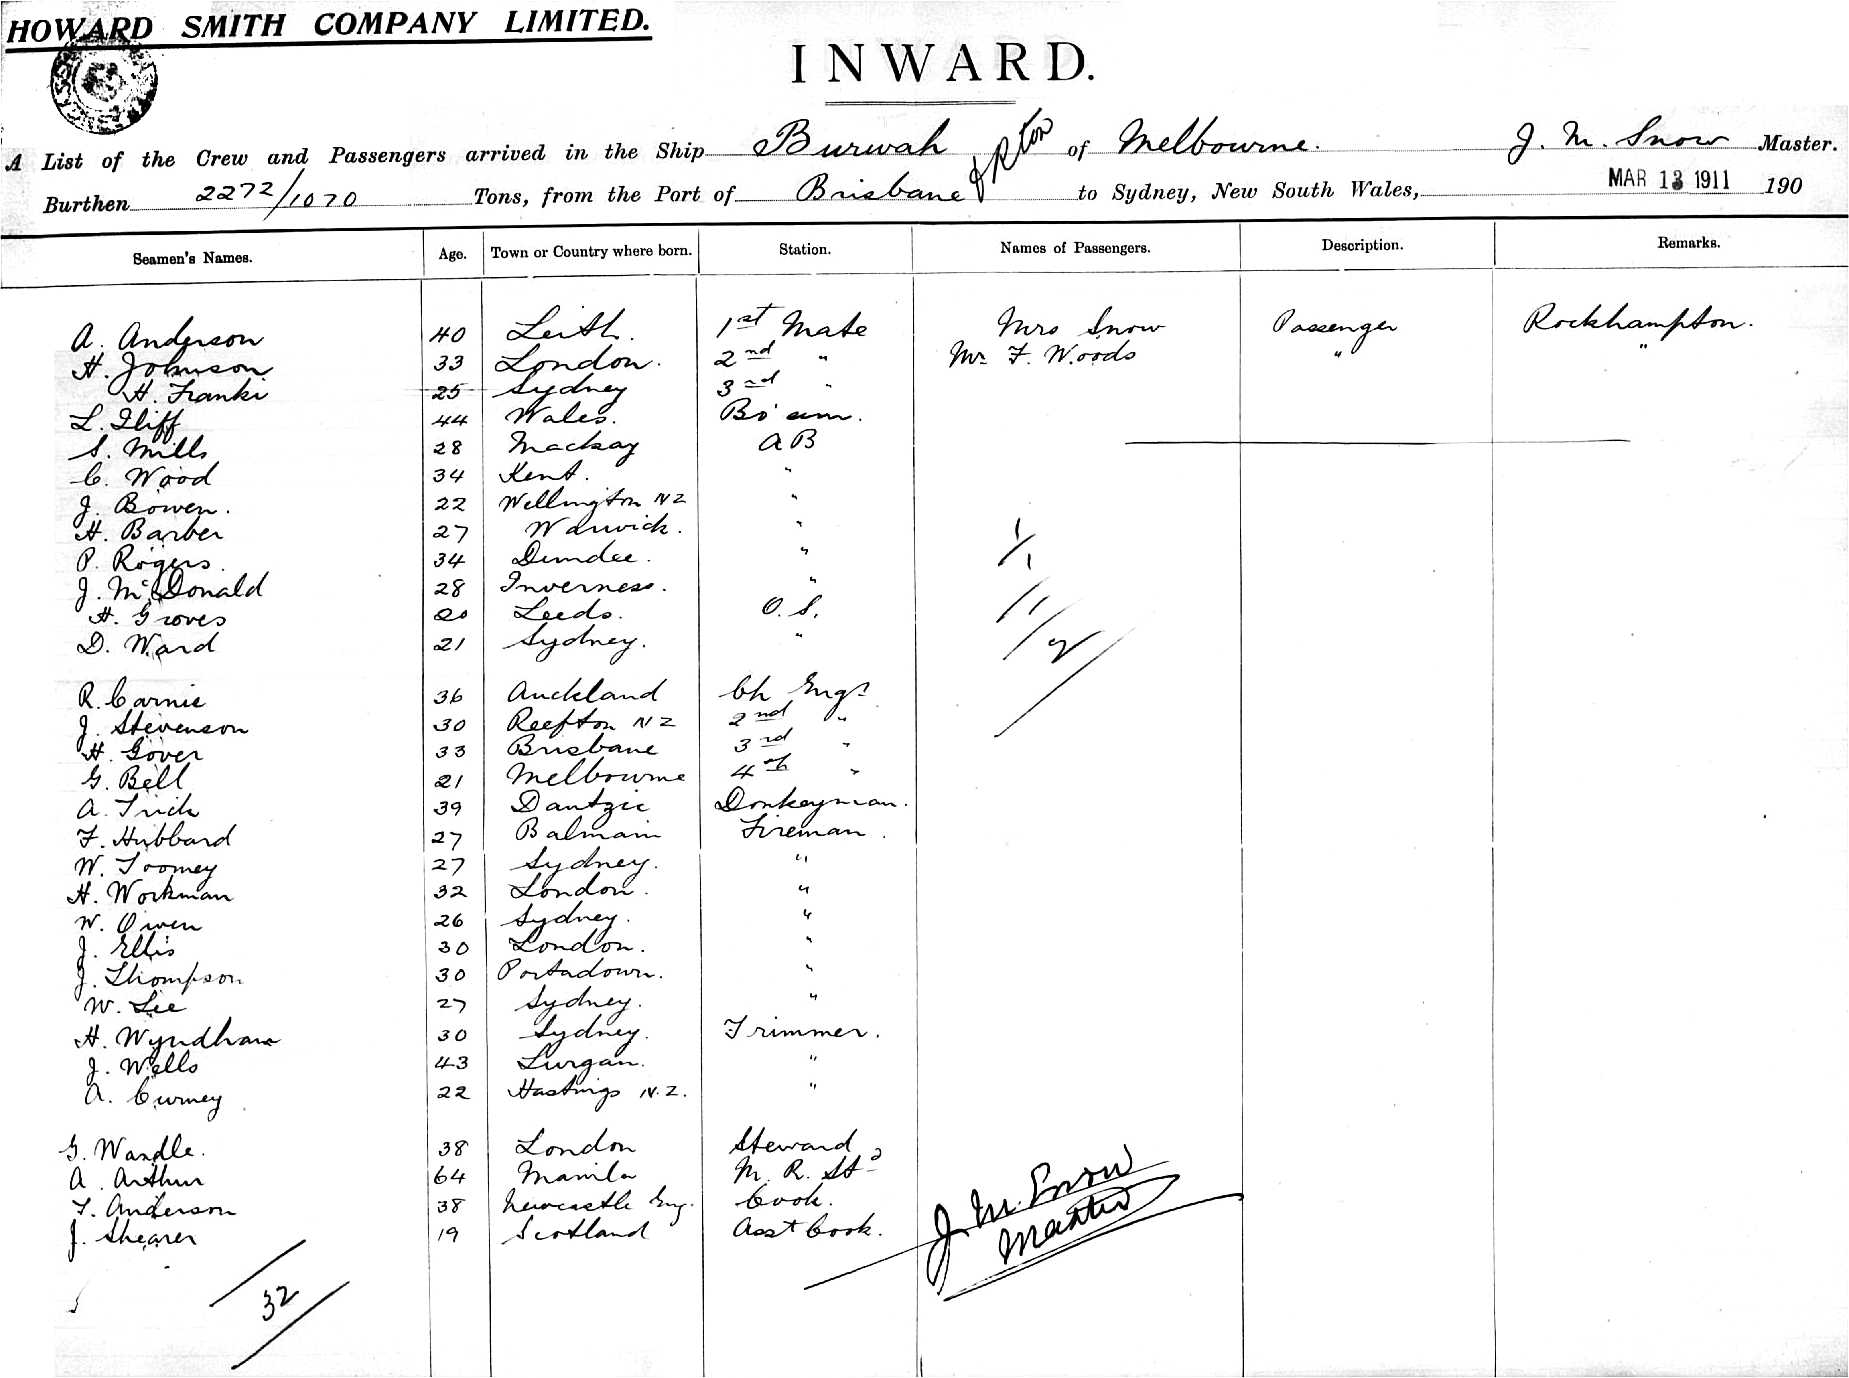 HOWARD SMITH COMPANY LIMITED.
INWARD.
A List of the Crew and Passengers arrived in the Ship Burwah of Melbourne. J. M. Snow Master.
Burthen 2272/1070 Tons, from the Port of Brisbane & Rton to Sydney, New South Wales, MAR 13 1911 190
Seamen's Names. Age. Town or Country where born. Station. Names of Passengers. Description. Remarks.
A. Anderson 40 Leith. 1st Mate Mrs Snow Passenger Rockhampton.
H. Johnson 33 London. 2nd " Mr. F. Woods " "
H. Franki 25 Sydney 3rd "
L. Iliff 44 Wales. Bo'sum.
S. Mills 28 Mackay AB
C. Wood 34 Kent. "
J. Bowen. 22 Wellington NZ "
H. Barber 27 Warwick. "
P. Rogers. 34 Dundee. "
J. McDonald 28 Inverness. "
H. Groves 20 Leeds. O.S.
D. Ward 21 Sydney. "
1/1
/1/
/2/
R. Carnie 36 Auckland Ch Engr
J. Stevenson 30 Reefton NZ 2nd "
H. Gover 33 Brisbane 3rd "
G. Bell 21 Melbourne 4th "
A. Trick 39 Dantzic Donkeyman.
F. Hubbard 27 Balmain Fireman.
W. Toomey 27 Sydney. "
H. Workman 32 London. "
W. Owen 26 Sydney. "
J. Ellis 30 London. "
J. Thompson 30 Portadown. "
W. Lee 27 Sydney. "
H. Wyndham 30 Sydney. Trimmer.
J. Wells 43 Lurgan. "
A. Curney 22 Hastings N.Z. "
G. Wandle. 38 London Steward
A. Arthur 64 Manila M. R. Std
T. Anderson 38 Newcastle Eng. Cook.
J. Shearer 19 Scotland Asst Cook.
J. M. Snow
Master
32